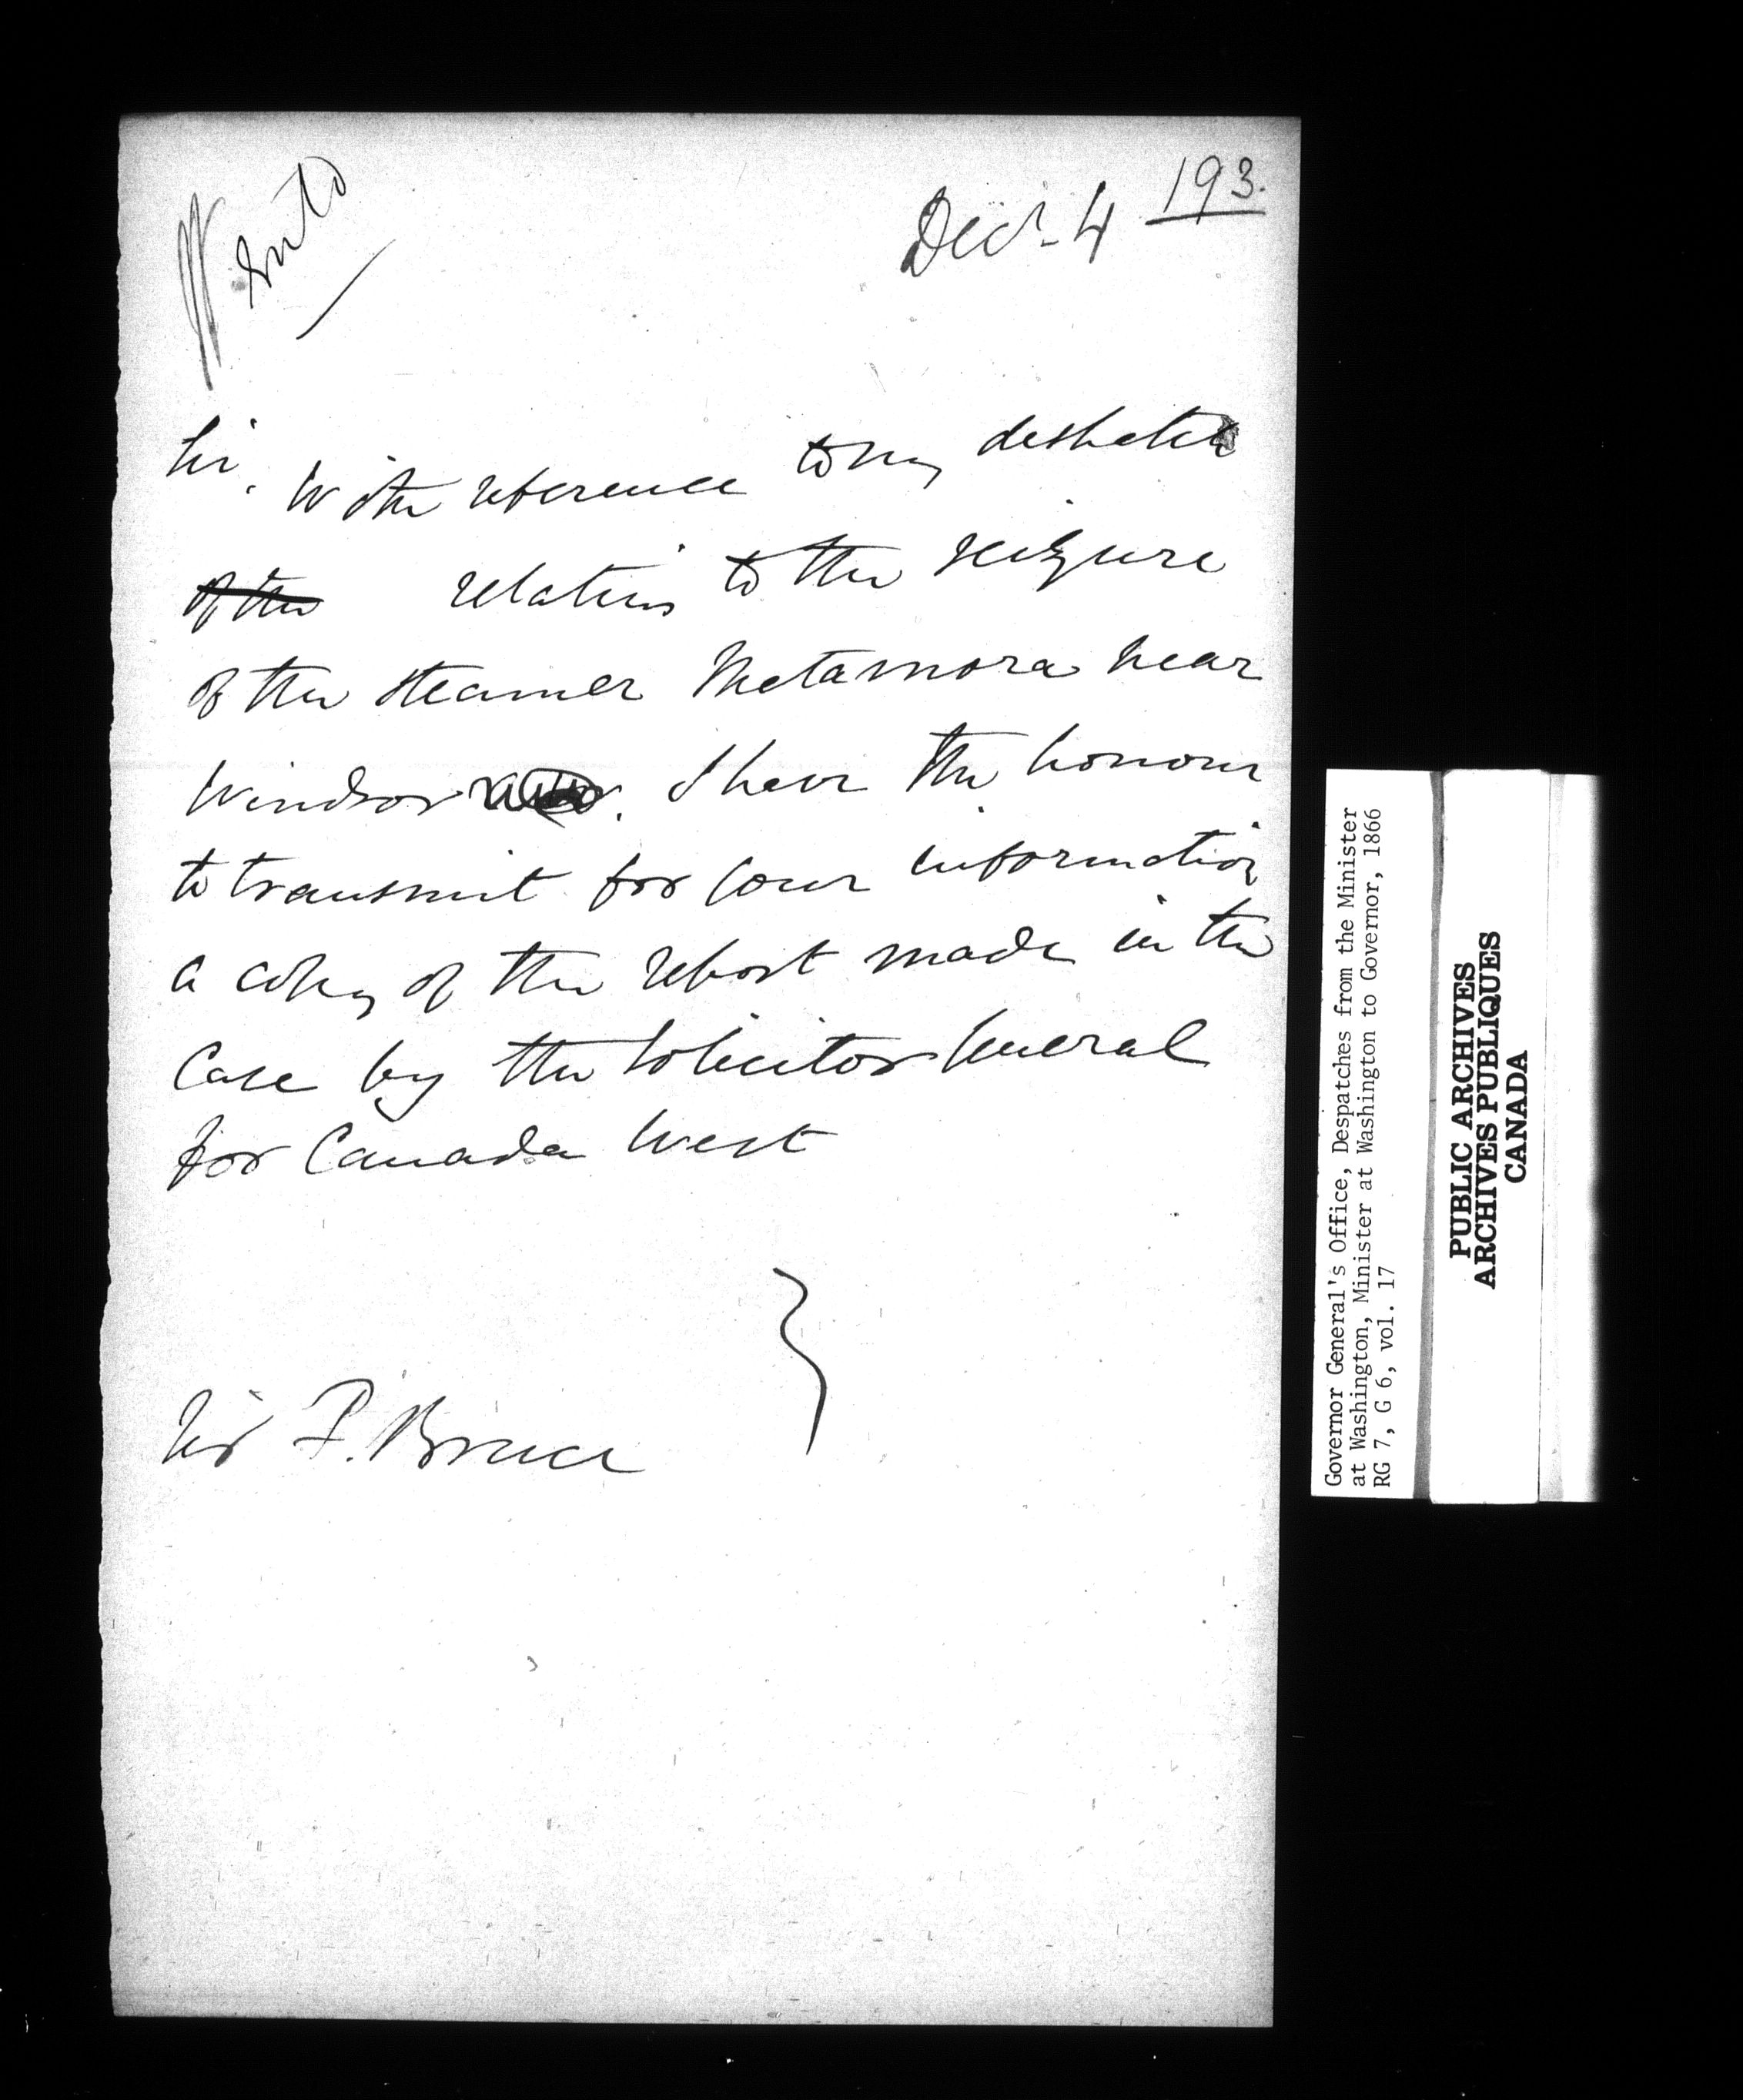 193.
Decr. 4
Sir,
With reference to my despatch
of the relative to the seizure
of the steamer Metamora near
Windsor I have the honour
to transmit for your information
a copy of the report made in the
Case by the Solicitor General
for Canada West
Sir F. Bruce
Governor General's Office, Despatches from the Minister
at Washington, Minister at Washington to Governor, 1866
RG 7, G 6, vol. 17
PUBLIC ARCHIVES
ARCHIVES PUBLIQUES
CANADA